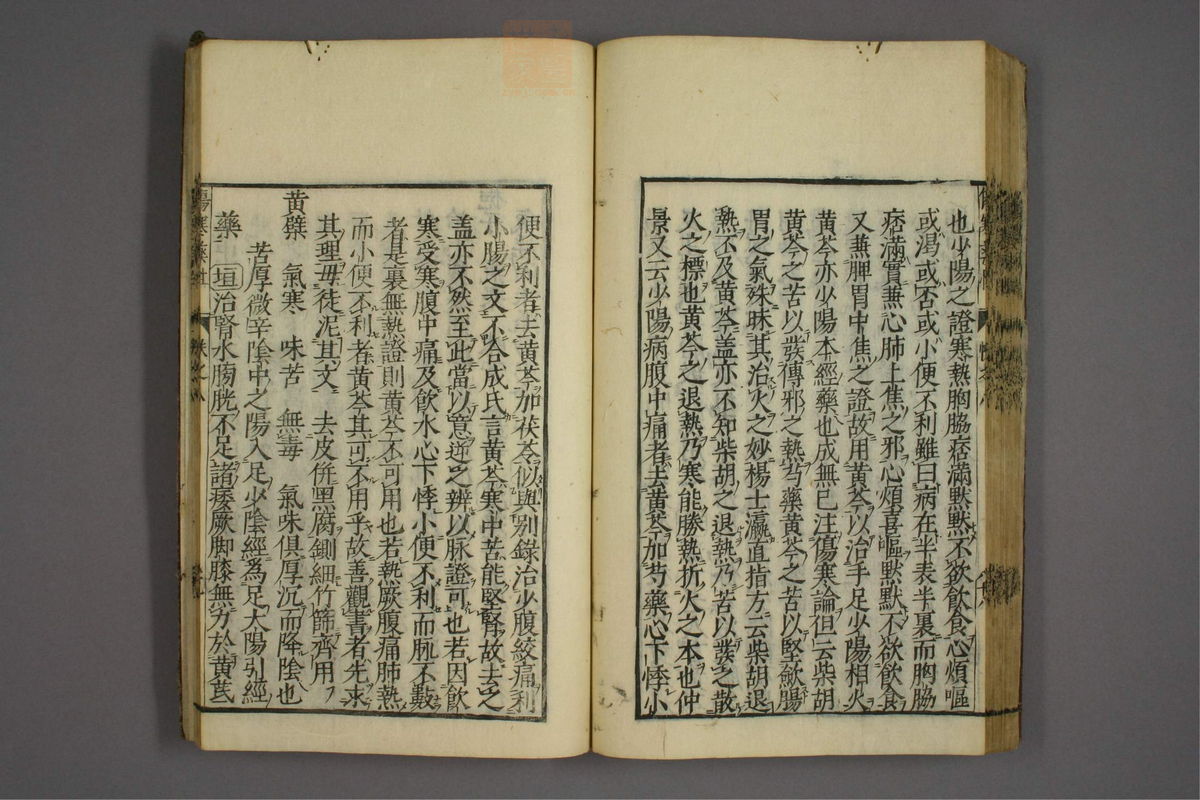 也少陽之證寒熱胸脇痞滿默默不欲飲食心煩嘔
或渴或否或小便不利雖曰病在半表半裏而胸脇
痞滿實兼心肺上焦之邪心煩喜嘔默默不欲飲食
又兼脾胃中焦之證故用黃芩以治手足少陽相火
黃芩亦少陽本經藥也成無已注傷寒論但云柴胡
黃芩之苦以發傳邪之熱芍藥黃芩之苦以堅斂腸
胃之氣殊昧其治火之妙楊士瀛直指方云柴胡退
熱不及黃芩盖亦不知柴胡之退熱乃苦以發之散
火之標也黃芩之退熱乃寒能勝熱折火之本也仲
景又云少陽病腹中痛者去黃芩加芍藥心下悸小
便不利者去黃芩加茯苓似與别錄治少腹絞痛利
小腸之文不合成氏言黃芩寒中苦能堅腎故去之
盖亦不然至此當以意逆之辨以脉證可也若因飲
寒受寒腹中痛及飲水心下悸小便不利而脉不數
者是裏無熱證則黃芩不可用也若熱厥腹痛肺熱
而小便不利者黃芩其可不用乎故善觀書者先求
其理毋徒泥其文 去皮併黑腐剉細竹篩齊用
黃檗 氣寒 味苦 無毒 氣味俱厚沉而降陰也
苦厚微辛陰中之陽入足少陰經為足太陽引經
藥 垣治腎水膀胱不足諸痿厥脚膝無力於黃茋